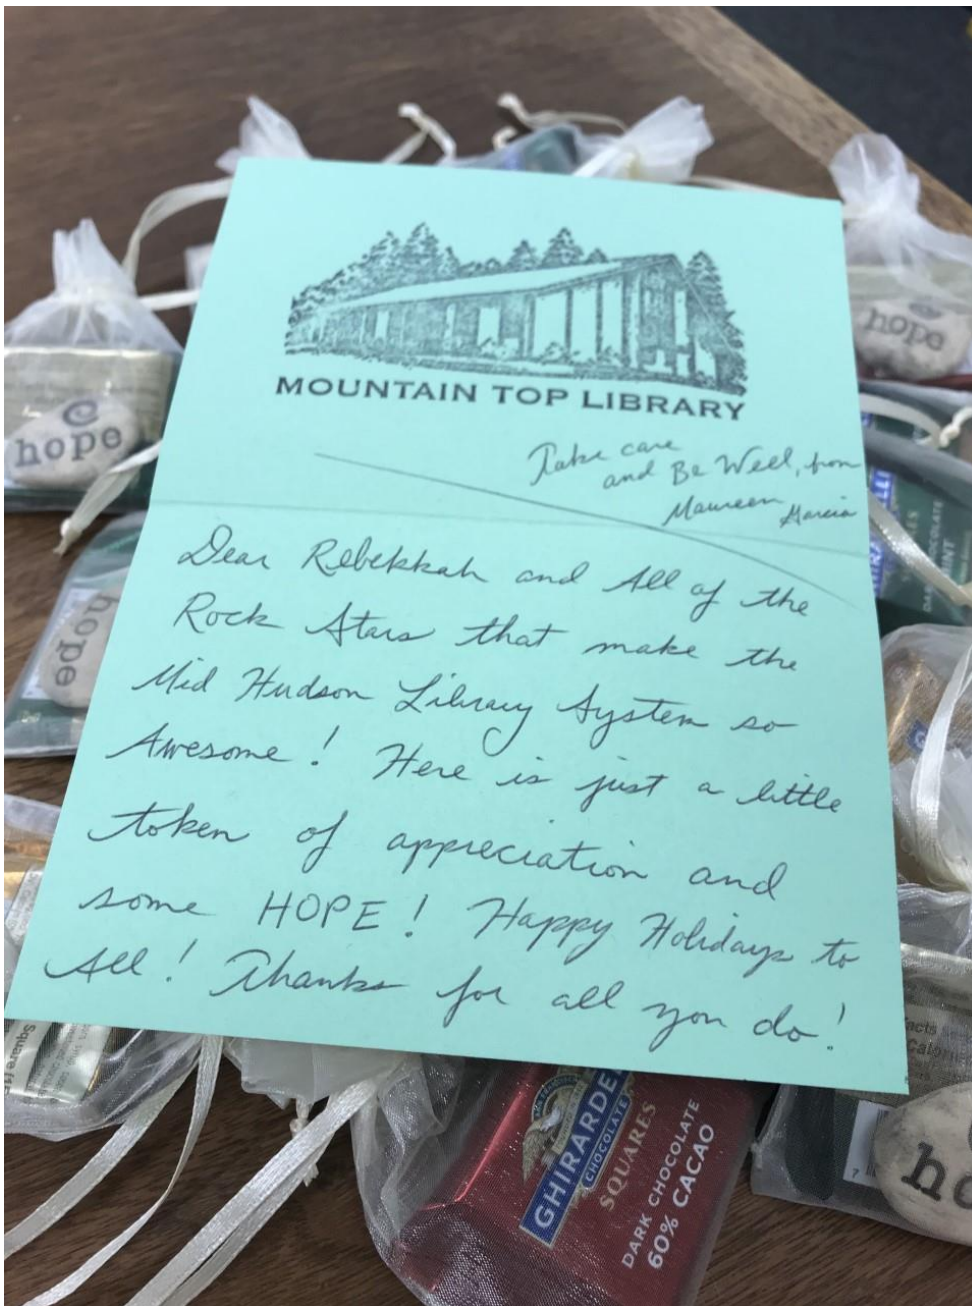 MOUNTAIN TOP LIBRARY
Take care
and Be Well, from
Maureen
Garcia
Dear Rebekkah and All of the
Rock Stars that make the
Mid Hudson Library System so
Awesome! Here is just a little
token of appreciation and
some HOPE! Happy Holidays to
All! Thanks for all you do!
hope
hope
hope
GHIRARDE
CHOCOLATE
SQUARES
DARK CHOCOLATE
60% CACAO
Square
ho